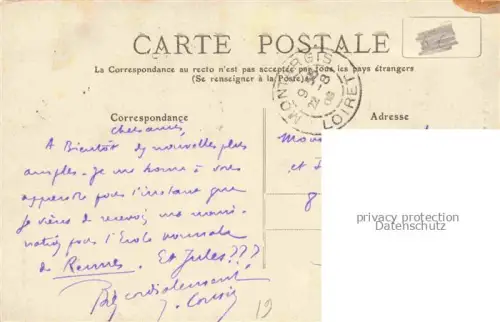 CARTE POSTALE
La Correspondance au recto n'est pas acceptée par tous les pays étrangers
(Se renseigner à la Poste)
MONTARGIS
9
22 -8
08
LOIRET
Correspondance
Adresse
chers amis,
A Bientôt de nouvelles plus
amples. je me borne à vous
apprendre pour l'instant que
je viens de recevoir ma nomi-
nation pour l'Ecole normale
de Rennes. Et Jules???
Bien cordialement
J. Cousin
19
et
8
privacy protection
Datenschutz